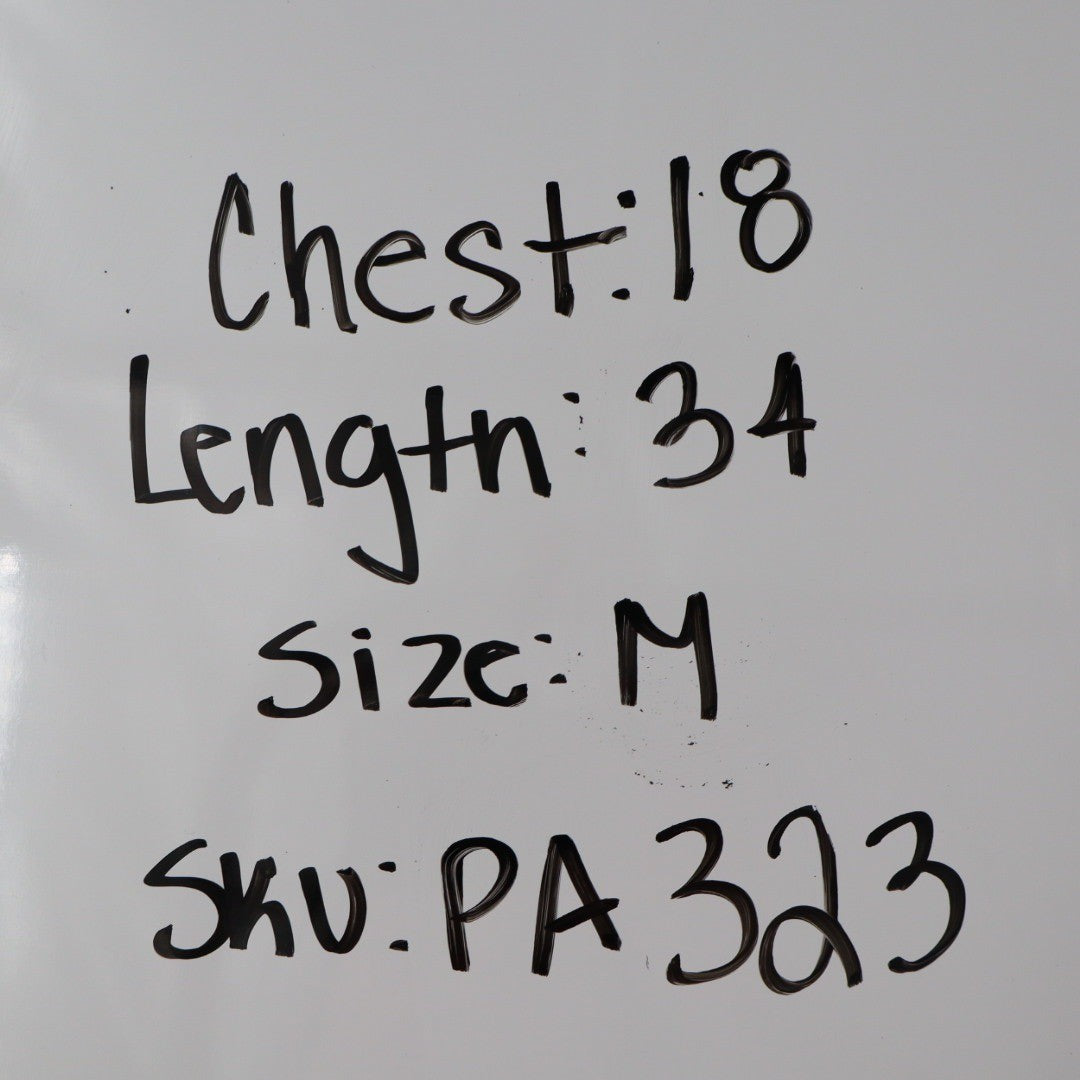 Chest: 18
Length: 34
Size: M
SKU: PA323